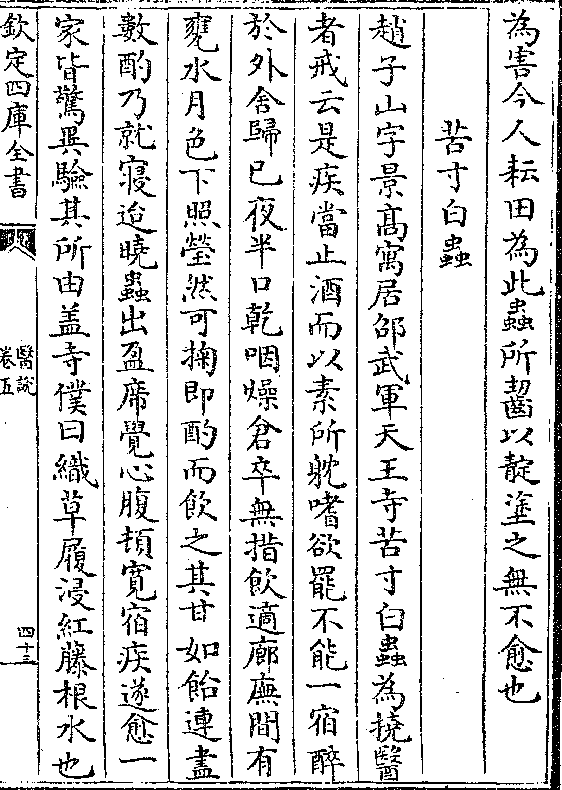 為害今人耘田為此蟲所齧以靛塗之無不愈也
苦寸白蟲
趙子山字景髙寓居邵武軍天王寺苦寸白蟲為撓醫
者戒云是疾當止酒而以素所躭嗜欲罷不能一宿醉
於外舍歸已夜半口乾咽燥倉卒無指飲適廊廡間有
甕水月色下照瑩然可掬即酌而飲之其甘如飴連盡
數酌乃就寢迨曉蟲出盈席覺心腹頓寛宿疾遂愈一
家皆驚異驗其所由盖寺僕曰織草履浸紅藤根水也
欽定四庫全書
醫說
卷五
四十三